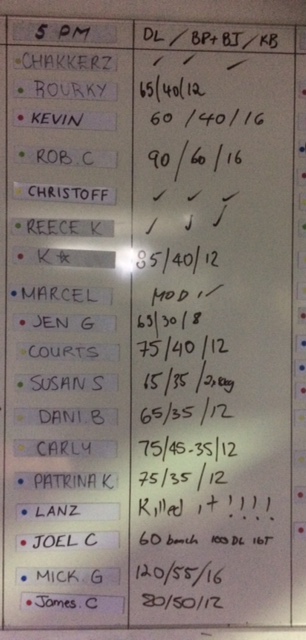 5 PM DL / BP+BJ / KB
CHAKKERZ ✓ ✓ ✓
ROURKY 65/40/12
KEVIN 60/40/16
ROB.C 90/60/16
CHRISTOFF ✓ ✓ ✓
REECE K ✓ ✓ ✓
K☆ 85/40/12
MARCEL MOD ✓
JEN G 65/30/8
COURTS 75/40/12
SUSAN S 65/35/
DANI.B 65/35/12
CARLY 75/45-35/12
PATRINA K 75/35/12
LANZ Killed it !!!!
JOEL C 60 bench 100 DL
MICK.G 120/55/16
James.C 80/50/12